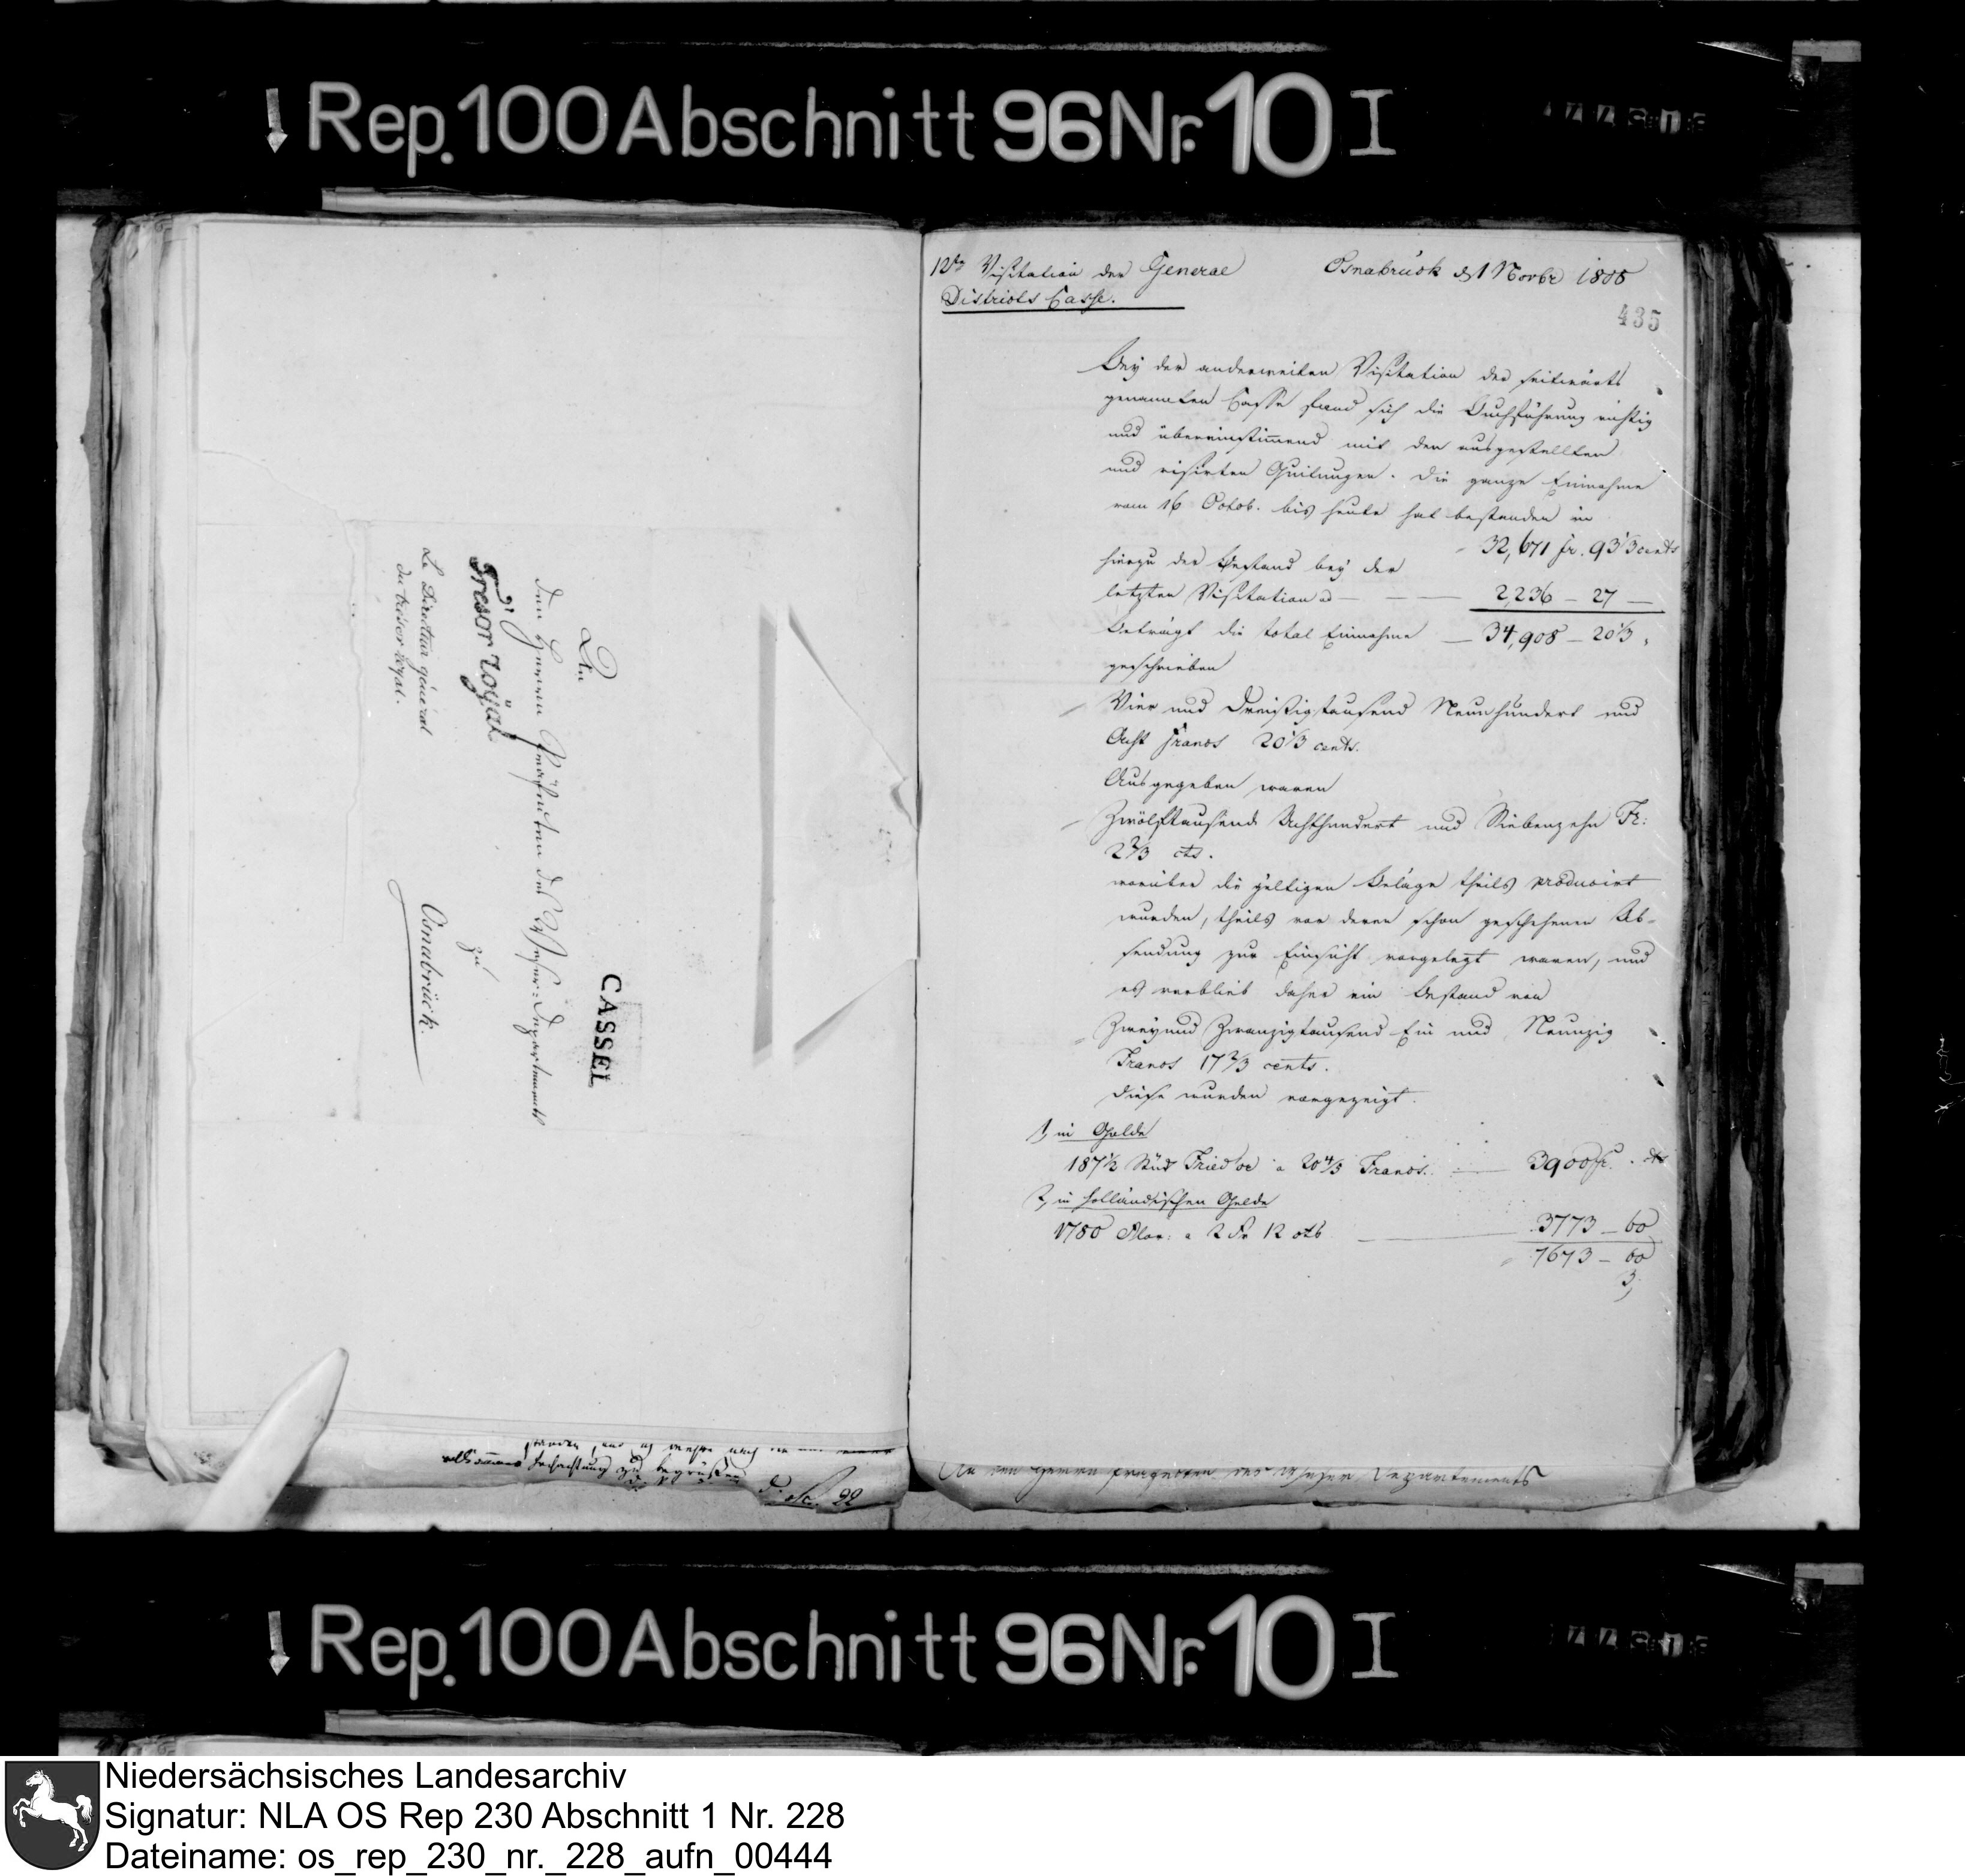 Rep. 100 Abschnitt 96 Nr. 10 I
An
den Herrn Präfecten des Weser-Departements
Tresor royal
zu
Le Directeur général
du trésor royal.
Osnabrück.
CASSEL
vollkommenen Hochachtung zu begrüßen
12te Visitation der General
Districts Casse.
Osnabrück d 1 Novbr 1808
435
Bey der anderweiten Visitation der seitwärts
genannten Casse fand sich die Buchführung richtig
und übereinstimmend mit den ausgestellten
und visirten Quitungen. Die ganze Einnahme
vom 16 Octob. bis heute hat bestanden in
32,671 fr. 93 1/3 cents
hierzu der Bestand bey der
letzten Visitation ad — 2236 — 27 —
Beträgt die total Einnahme — 34,908 — 20 1/3
geschrieben
Vier und Dreißigtausend Neunhundert und
Acht Francs 20 1/3 cents.
Ausgegeben waren
Zwölftausend Achthundert und Siebenzehn Fr:
2 2/3 cts.
worüber die gültigen Beläge theils producirt
wurden, theils vor deren schon geschehenen Ab-
sendung zur Einsicht vorgelegt waren, und
es verblieb daher ein Bestand von
Zwey und Zwanzigtausend Ein und Neunzig
Francs 17 2/3 cents.
Diese wurden vorgezeigt.
1, in Golde
187 1/2 Stück Friedor a 20 4/5 Francs. — 3900 fr. - cts
2, in holländischen Gelde
1780 Flor: a 2 Fr 12 cts — 3773 — 60
7673 — 60
3,
An den Herrn Präfecten des Weser Departements
Rep. 100 Abschnitt 96 Nr. 10 I
Niedersächsisches Landesarchiv
Signatur: NLA OS Rep 230 Abschnitt 1 Nr. 228
Dateiname: os_rep_230_nr._228_aufn_00444